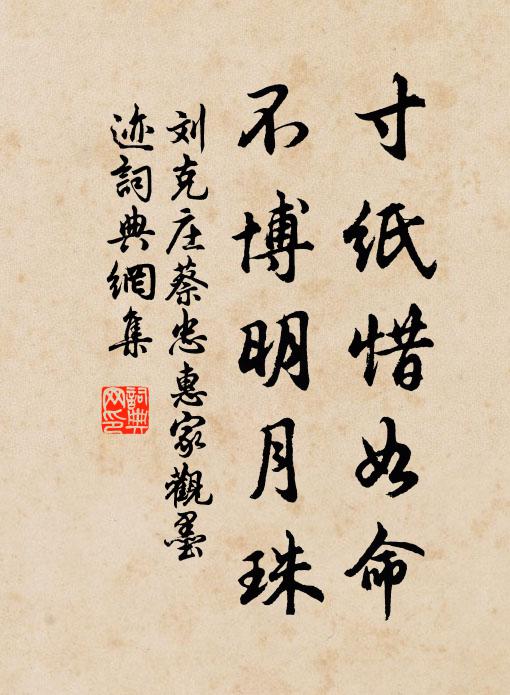 寸纸惜如命
不博明月珠
刘克庄蔡忠惠家觀墨
迹詞典網集
詞典
网印